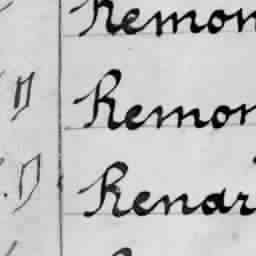 Remon
" Remon
" Renar